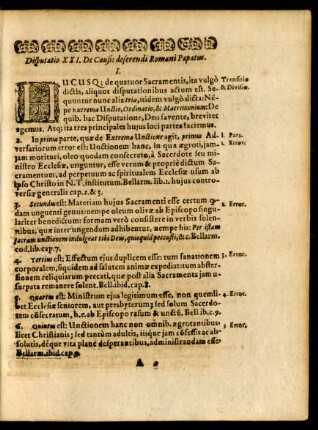 Disputatio XXI. De Causis deserendi Romani Papatus.
I.
HUCUSQ; de quatuor Sacramentis, ita vulgò Transitio
dictis, aliquot disputationibus actum est. Se- & Divisio.
quuntur nunc alia tria, itidem vulgò dicta: Nẽ-
pe extrema Unctio, Ordinatio, & Matrimonium: De
quib. hac Disputatione, Deo favente, breviter
agemus. Atq; ita tres principales hujus loci partes faciemus.
2. In prima parte, quæ de Extrema Unctione agit, primus Ad- I. Pars.
versariorum error est: Unctionem hanc, in qua ægroti, jam, 1. Error.
jam morituri, oleo quodam consecrato, à Sacerdote seu mi-
nistro Ecclesiæ, unguntur, esse verum & propriè dictum Sa-
cramentum, ad perpetuum ac spiritualem Ecclesiæ usum ab
ipso Christo in N.T. institutum. Bellarm. lib. 1. hujus contro-
versiæ generalis cap. 2. & 3.
3. Secundus est: Materiam hujus Sacramenti esse certum q- 2. Error.
dam unguenti genus: nempe oleum olivæ ab Episcopo singu-
lariter benedictum: formam verò consistere in verbis solen-
nibus, quæ inter ungendum adhibentur, nempe his: Per istam
sacram unctionem indulgeat tibi Deus, quicquid peccasti, &c. Bellarm.
cod. lib. cap. 7.
4. Tertius est: Effectum ejus duplicem esse: tum sanationem 3. Error.
corporalem, siquidem ad salutem animæ expediat: tum abster-
sionem reliquiarum peccati, quæ post alia Sacramenta jam u-
surpata remanere solent. Bell. ibid. cap. 8.
5. Quartus est: Ministrum ejus legitimum esse, non quemli- 4. Error.
bet Ecclesiæ seniorem, aut presbyterum; sed solum Sacerdo-
tem cõsecratum, h.e. ab Episcopo rasum & unctũ. Bell ib. c. 9.
6. Quintus est: Unctionem hanc non omnib. ægrotantibus, 5. Error.
licet Christianis; sed tantùm adultis, iisque jam cõfessis ac ab-
solutis, déque vita planè desperantibus, administrandam esse
Bellarm. ibid. cap. 9.
A 2